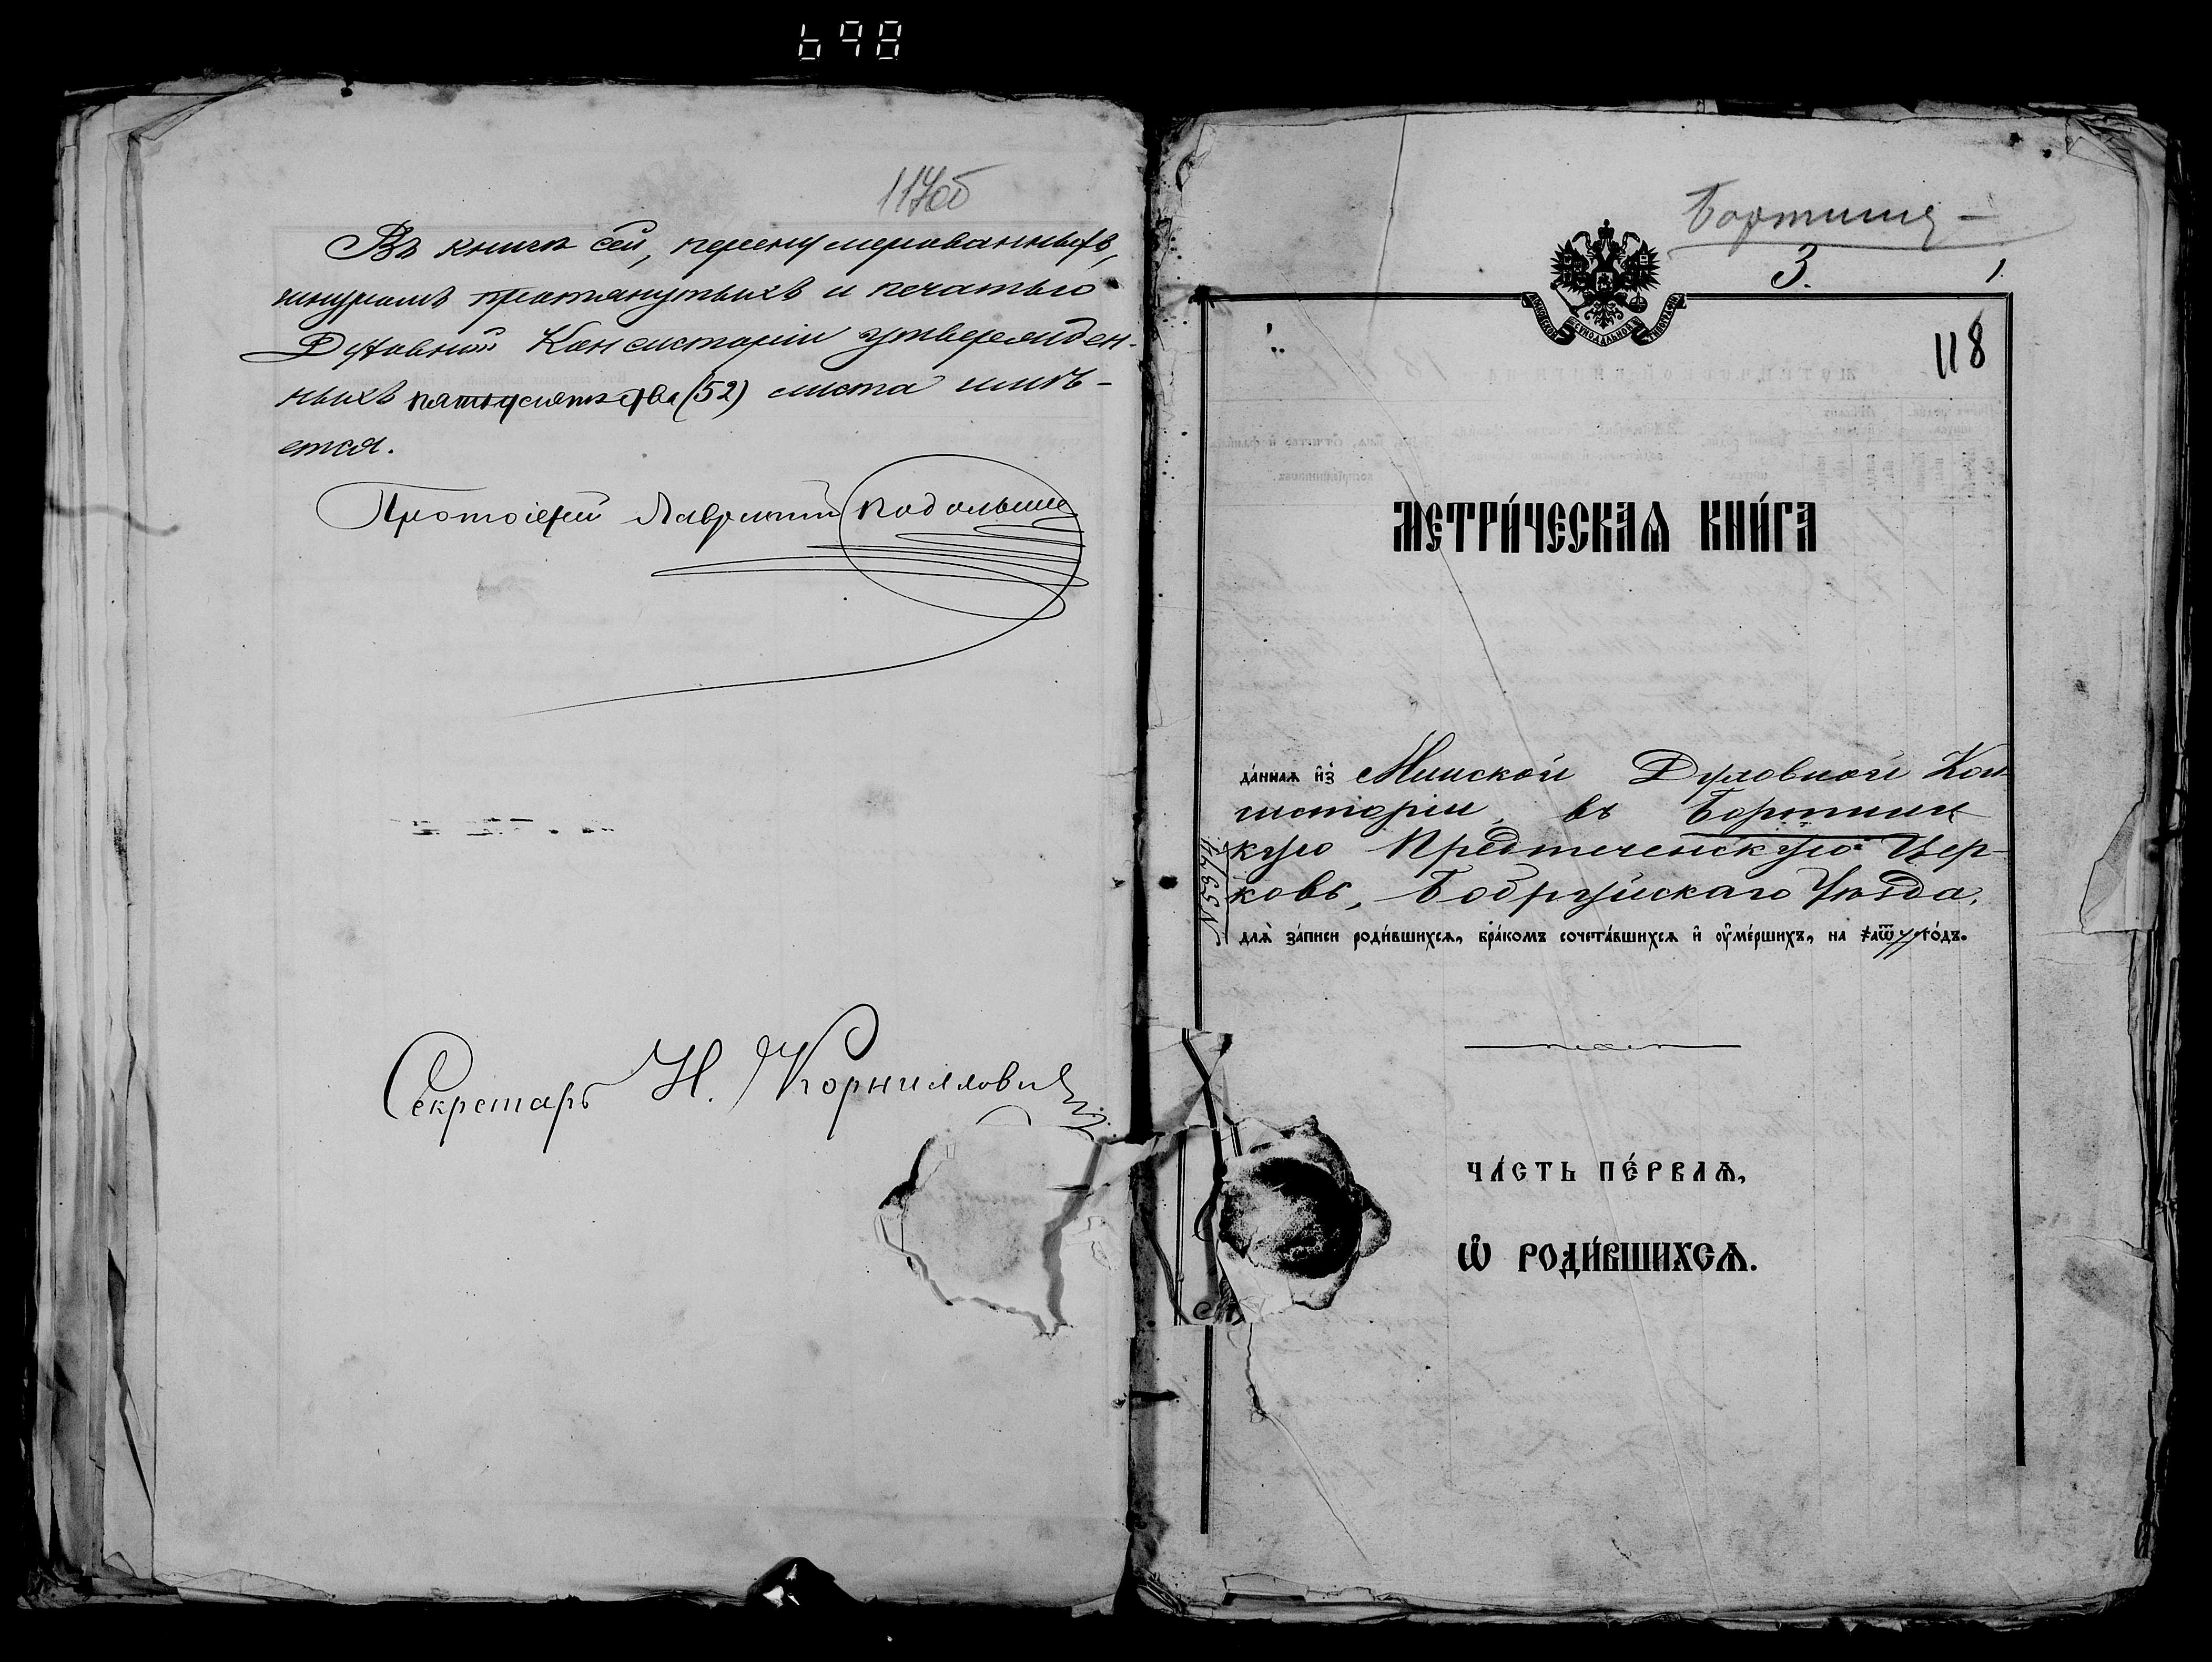 698
117об
Въ книгѣ сей, перенумерованныхъ,
шнуромъ протянутыхъ и печатью
Духовной Консисторіи утвержден-
ныхъ пятьдесятъ два (52) листа имѣ-
ется.
Протоіерей Лаврентій
Секретарь Н. Корнилович
Бортище
3. 1.
118
МЕТРИ́ЧЕСКАѦ КНИ́ГА
да́ннаѧ и҆з̾ Минской Духовной Кон
систоріи, въ
кую Предтеченскую Цер-
ковь, Бобруйскаго Уѣзда,
длѧ̀ за́писи роди́вшихсѧ, бра́комъ сочета́вшихсѧ и҆ ᲂу҆ме́ршихъ, на го́дъ.
№ 5374
ЧА́СТЬ ПЕ́РВАѦ,
Ѡ҆ РОДИ́ВШИХСѦ.